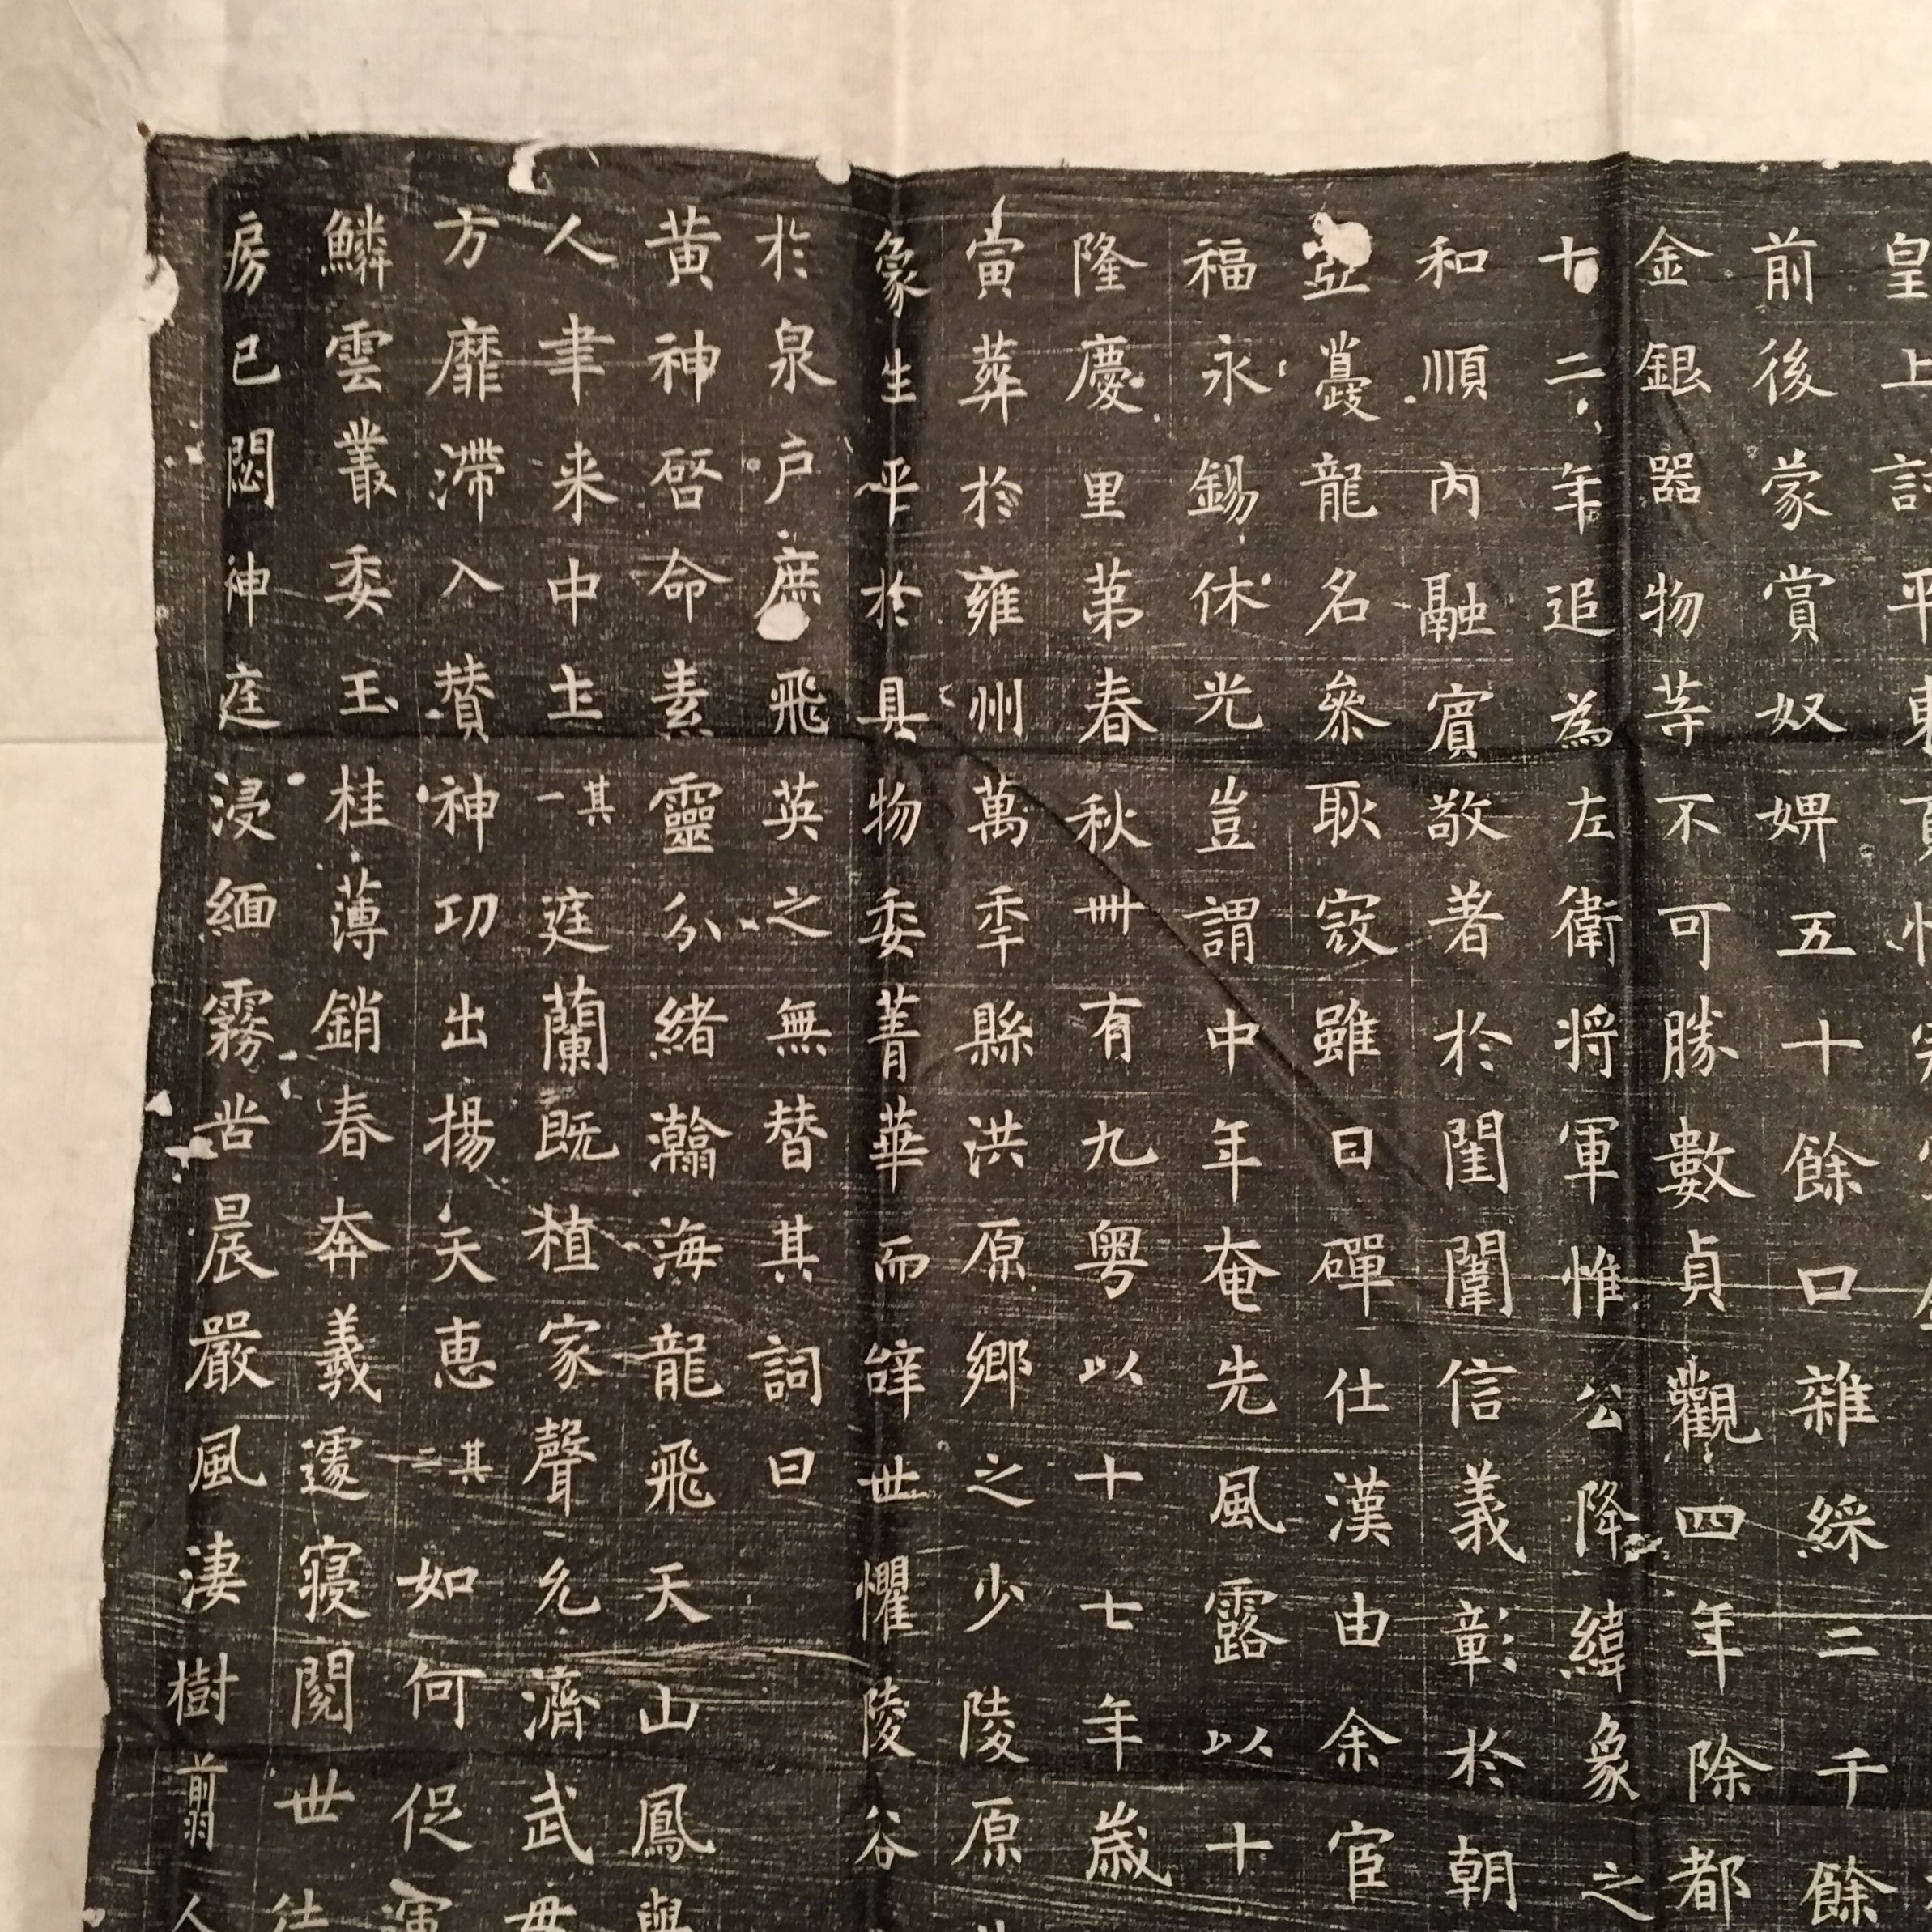 皇上討平東
前後蒙賞奴婢五十餘口雜綵三千餘
金銀器物等不可勝數貞觀四年除都
十二年追為左衛將軍惟公降緯象之
和順內融賓敬著於閨闈信義彰於朝
亞蹬龍名參耿寇雖日磾仕漢由余宦
福永錫休光豈謂中年奄先風露以十
隆慶里第春秋卌有九粵以十七年歲
寅葬於雍州萬年縣洪原鄉之少陵原
象生平於具物委菁華而辭世懼陵谷
於泉戶庶飛英之無替其詞曰
黃神啓命素靈分緒瀚海龍飛天山鳳舉
人聿来中土其一庭蘭既植家聲允濟武毋
方靡滯入贊神功出揚天恵其二如何促運
鱗雲叢委玉桂薄銷春奔義遽寢閱世
房已閟神庭浸緬霧苦晨嚴風淒樹翦人